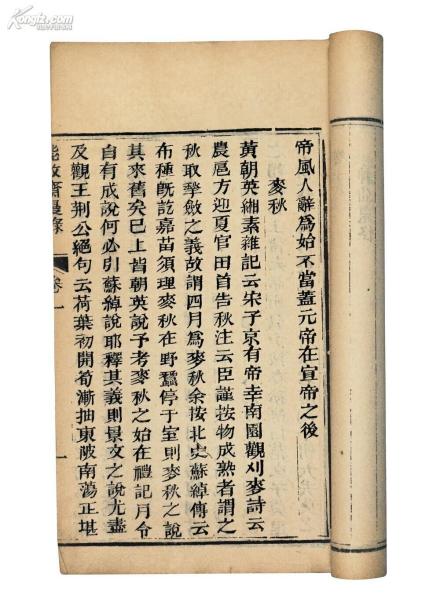 帝風人辭爲始不當蓋元帝在宣帝之後
麥秋
黃朝英緗素雜記云宋子京有帝幸南園觀刈麥詩云
農扈方迎夏官田首告秋注云臣謹按物成熟者謂之
秋取揫斂之義故謂四月爲麥秋余按北史蘇綽傳云
布種既訖嘉苗須理麥秋在野蠶停于室則麥秋之說
其來舊矣已上皆朝英說予考麥秋之始在禮記月令
自有成說何必引蘇綽說耶釋其義則景文之說尤盡
及觀王荆公絕句云荷葉初開筍漸抽東陂南蕩正堪
能改齋漫錄
卷一
一
Kongfz.com